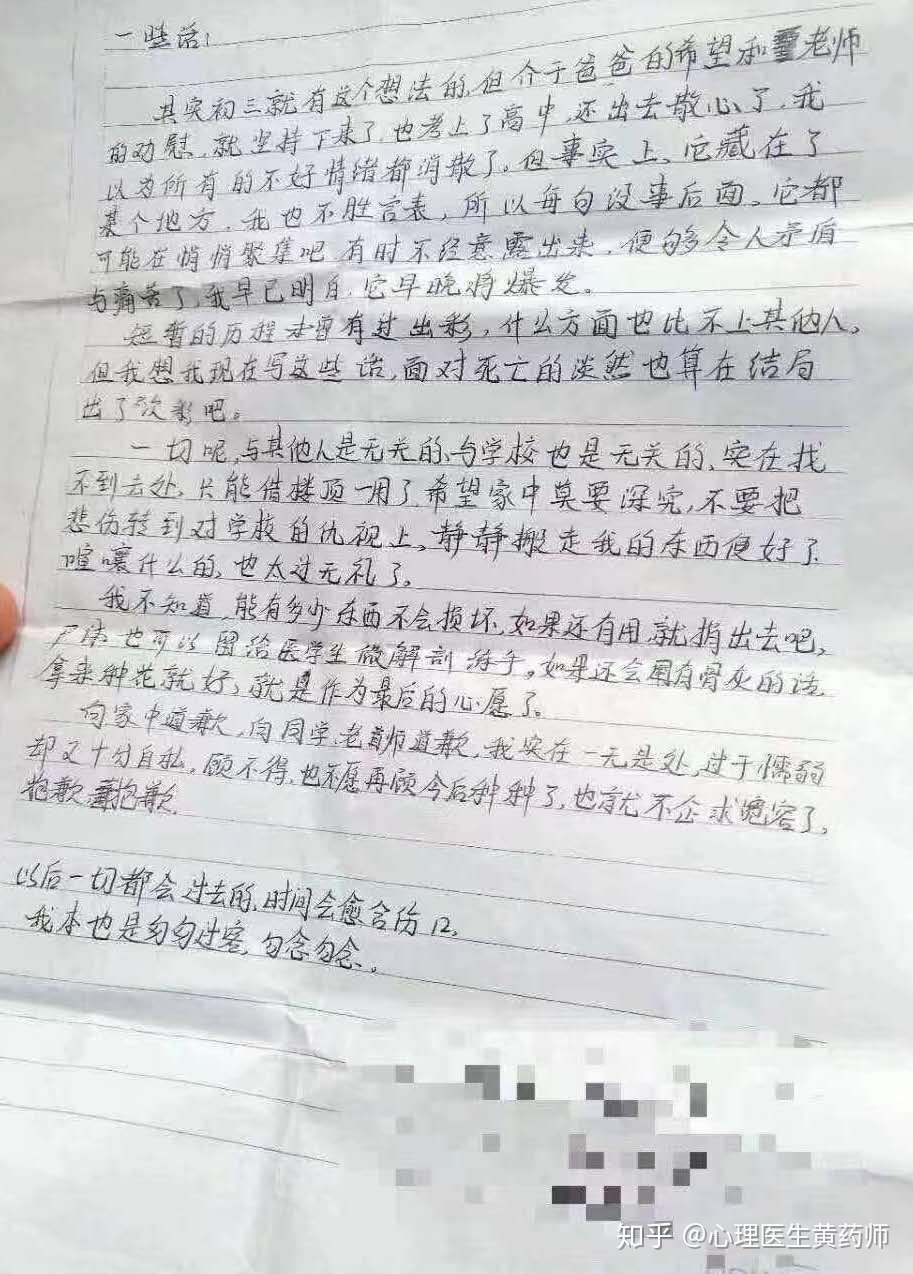 一些话:
其实初三就有这个想法的,但介于爸爸的希望和老师
的劝慰,就坚持下来了,也考上了高中,还出去散心了,我
以为所有的不好情绪都消散了。但事实上,它藏在了
某个地方,我也不胜言表,所以每句没事后面,它都
可能在悄悄聚集吧,有时不经意露出来,便够令人矛盾
与痛苦了,我早已明白,它早晚将爆发。
短暂的历程未曾有过出彩,什么方面也比不上其他人,
但我想我现在写这些话,面对死亡的淡然也算在结局
出了次彩吧。
一切呢,与其他人是无关的,与学校也是无关的,实在找
不到去处,只能借楼顶一用了,希望家中莫要深究,不要把
悲伤转到对学校的仇视上,静静搬走我的东西便好了,
喧嚷什么的,也太过无礼了。
我不知道,能有多少东西不会损坏,如果还有用,就捐出去吧,
尸体也可以留给医学生做解剖练手。如果还会留有骨灰的话,
拿来种花就好,就是作为最后的心愿了。
向家中道歉,向同学、老师道歉,我实在一无是处,过于懦弱
却又十分自私,顾不得,也不愿再顾今后种种了,也就不企求宽容了,
抱歉,抱歉。
以后一切都会过去的,时间会愈合伤口,
我本也是匆匆过客,勿念勿念。
知乎 @心理医生黄药师